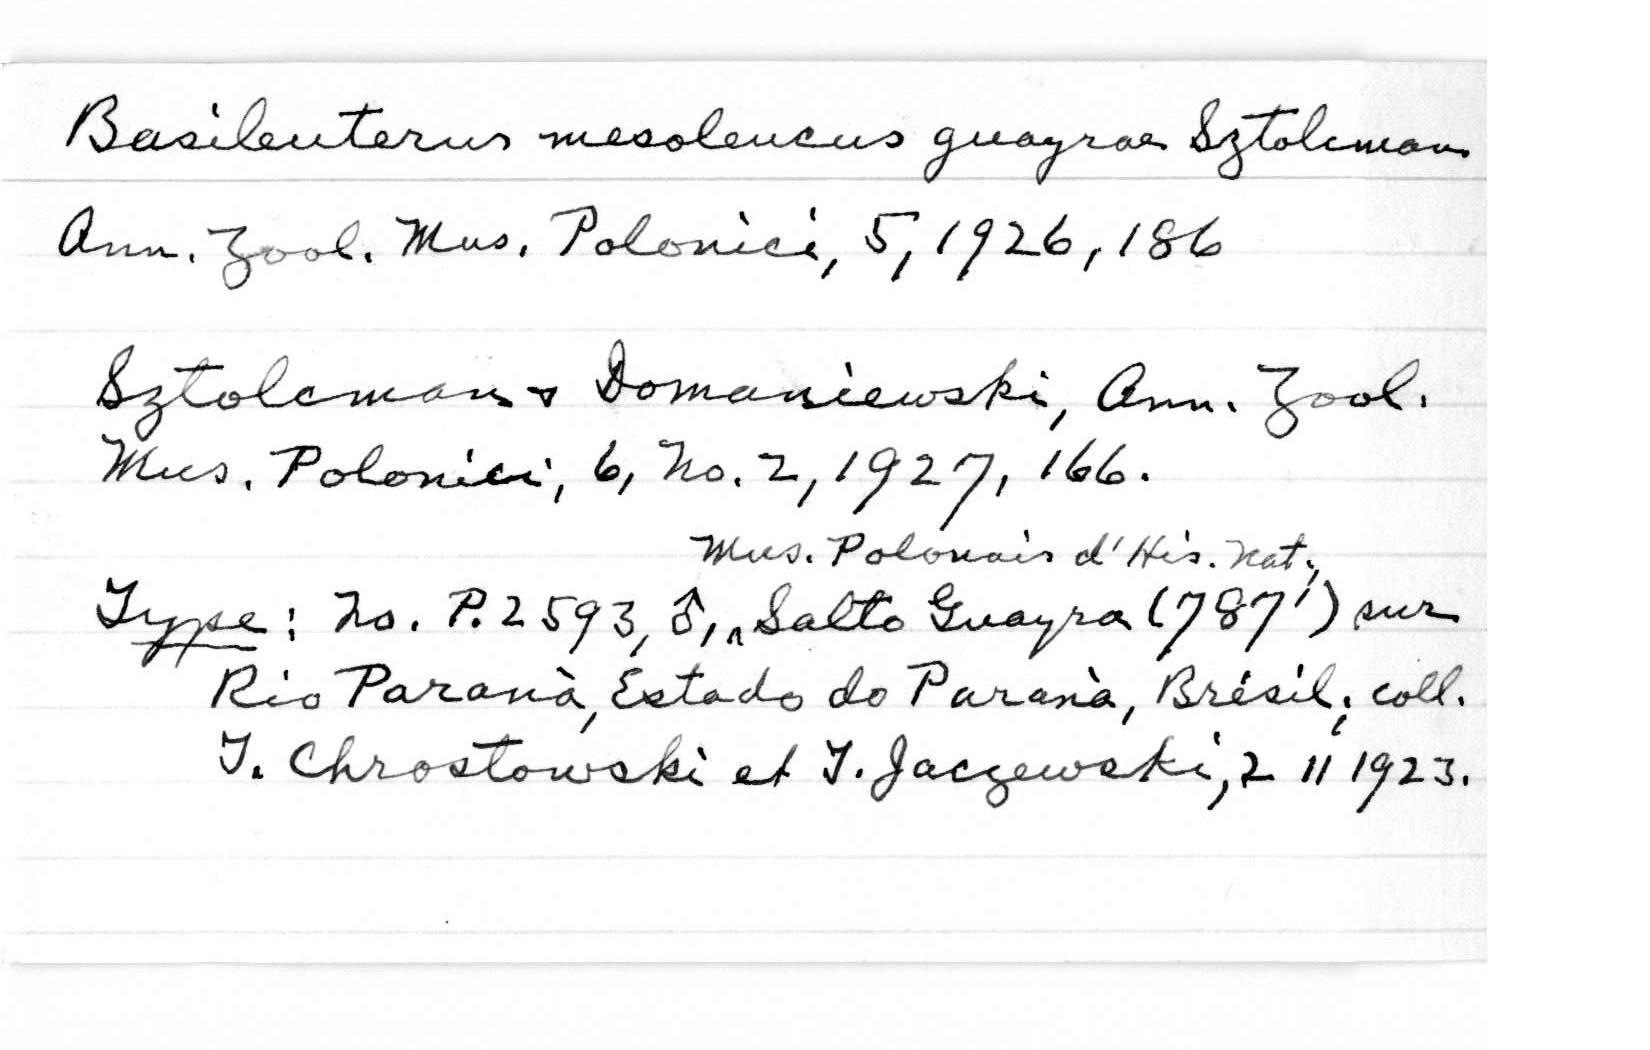 Basileuterus mesoleucus guayrae Sztolcman
Ann. Zool. Mus. Polonici, 5, 1926, 186
Sztolcman & Domaniewski, Ann. Zool.
Mus. Polonici, 6, No. 2, 1927, 166.
Mus. Polonais d'His. Nat.,
Type: No. P. 2593, ♂, ∧ Salto Guayra (787') sur
Rio Paranà, Estado do Paranà, Brésil; coll.
T. Chrostowski et T. Jaczewski, 2 II 1923.